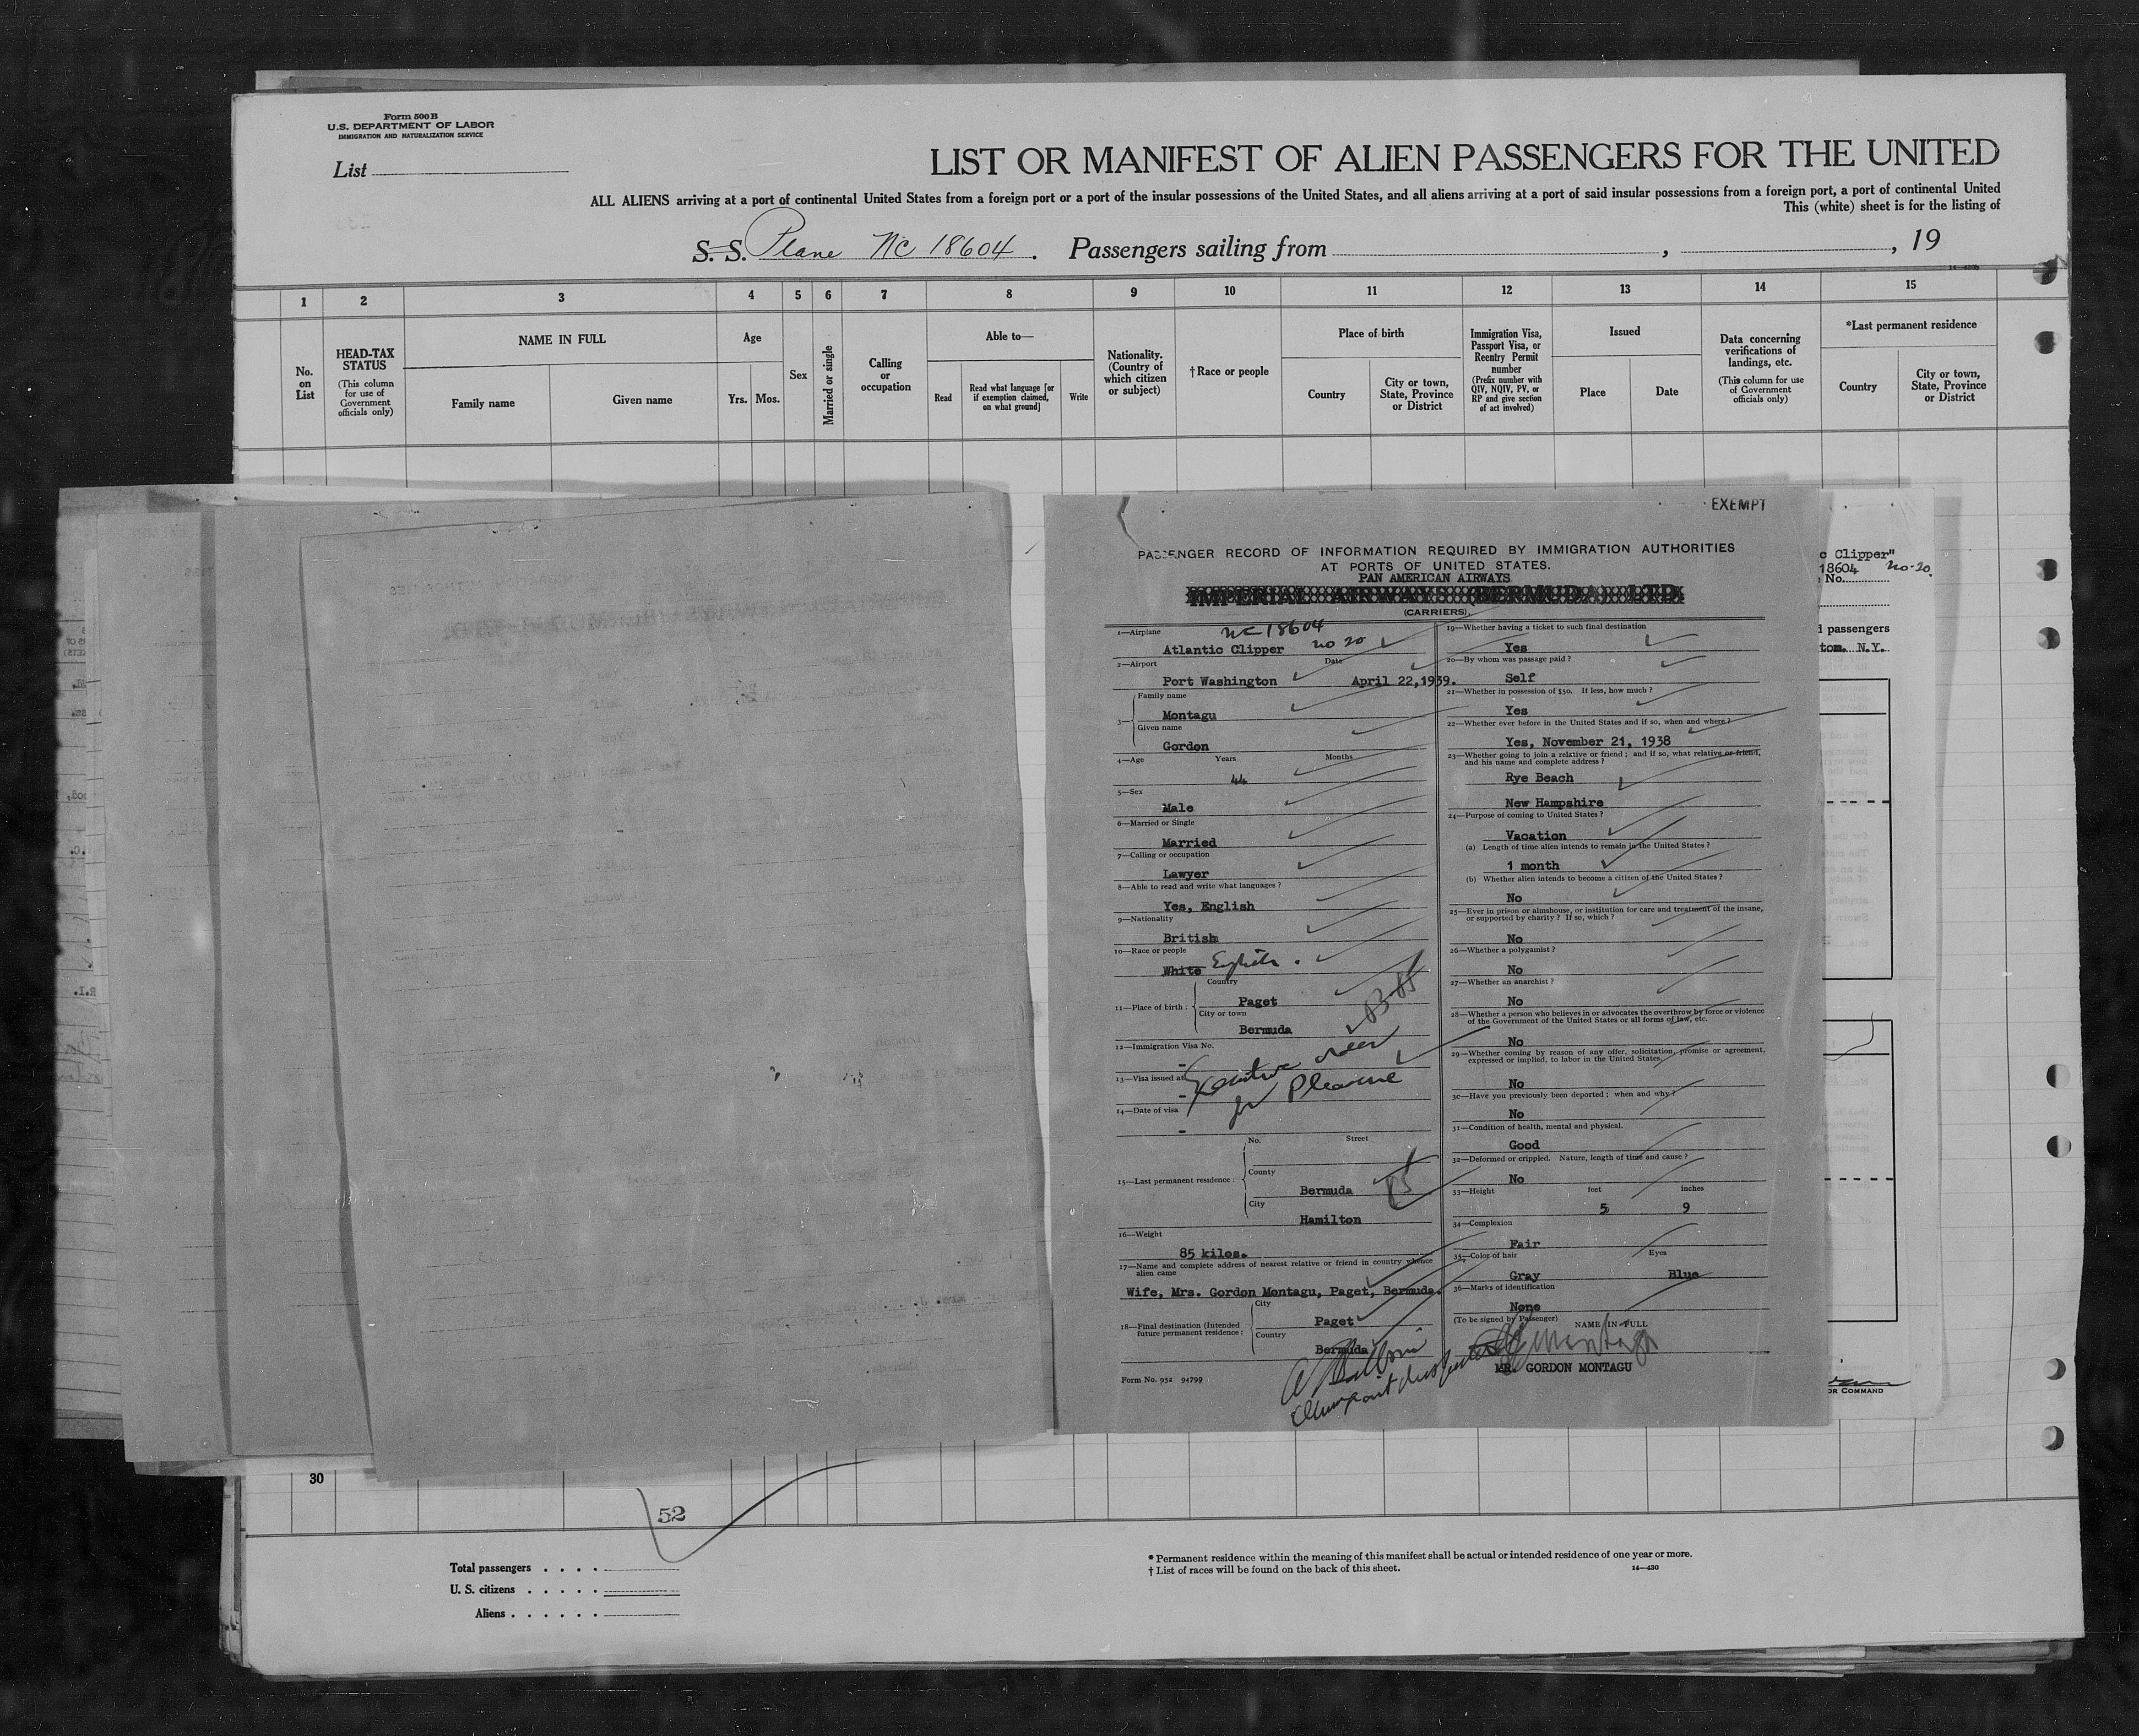 Form 500 B
U.S. DEPARTMENT OF LABOR
IMMIGRATION AND NATURALIZATION SERVICE
List
LIST OR MANIFEST OF ALIEN PASSENGERS FOR THE UNITED
ALL ALIENS arriving at a port of continental United States from a foreign port or a port of the insular possessions of the United States, and all aliens arriving at a port of said insular possessions from a foreign port, a port of continental United
This (white) sheet is for the listing of
S. S. Plane NC 18604. Passengers sailing from , , 19
14—430b
1 2 3 4 5 6 7 8 9 10 11 12 13 14 15
No. on List
HEAD-TAX STATUS
(This column for use of Government officials only)
NAME IN FULL
Family name Given name
Age
Yrs. Mos.
Sex
Married or single
Calling or occupation
Able to—
Read
Read what language [or if exemption claimed, on what ground]
Write
Nationality. (Country of which citizen or subject)
†Race or people
Place of birth
Country
City or town, State, Province or District
Immigration Visa, Passport Visa, or Reentry Permit number
(Prefix number with QIV, NQIV, PV, or RP and give section of act involved)
Issued
Place Date
Data concerning verifications of landings, etc.
(This column for use of Government officials only)
*Last permanent residence
Country
City or town, State, Province or District
EXEMPT
PASSENGER RECORD OF INFORMATION REQUIRED BY IMMIGRATION AUTHORITIES
AT PORTS OF UNITED STATES.
PAN AMERICAN AIRWAYS
IMPERIAL AIRWAYS (BERMUDA) LTD.
(CARRIERS)
1—Airplane NC 18604
Atlantic Clipper no 20
2—Airport Date
Port Washington April 22,1939.
Family name
3— Montagu
Given name
Gordon
4—Age Years Months
44
5—Sex
Male
6—Married or Single
Married
7—Calling or occupation
Lawyer
8—Able to read and write what languages?
Yes, English
9—Nationality
British
10—Race or people
White English
Country
11—Place of birth: Paget
City or town
Bermuda
12—Immigration Visa No.
-
13—Visa issued at
-
Executive order
for Pleasure
14—Date of visa
-
No. Street
County
15—Last permanent residence: Bermuda
City
Hamilton
16—Weight
85 kilos.
17—Name and complete address of nearest relative or friend in country whence
alien came
Wife, Mrs. Gordon Montagu, Paget, Bermuda.
City
18—Final destination (Intended Paget
future permanent residence: Country
Bermuda
Form No. 952 94799
19—Whether having a ticket to such final destination
Yes
20—By whom was passage paid?
Self
21—Whether in possession of $50. If less, how much?
Yes
22—Whether ever before in the United States and if so, when and where?
Yes, November 21, 1938
23—Whether going to join a relative or friend; and if so, what relative or friend,
and his name and complete address?
Rye Beach
New Hampshire
24—Purpose of coming to United States?
Vacation
(a) Length of time alien intends to remain in the United States?
1 month
(b) Whether alien intends to become a citizen of the United States?
No
25—Ever in prison or almshouse, or institution for care and treatment of the insane,
or supported by charity? If so, which?
No
26—Whether a polygamist?
No
27—Whether an anarchist?
No
28—Whether a person who believes in or advocates the overthrow by force or violence
of the Government of the United States or all forms of law, etc.
No
29—Whether coming by reason of any offer, solicitation, promise or agreement,
expressed or implied, to labor in the United States,
No
30—Have you previously been deported; when and why?
No
31—Condition of health, mental and physical.
Good
32—Deformed or crippled. Nature, length of time and cause?
No
33—Height feet inches
5 9
34—Complexion
Fair
35—Color of hair Eyes
Gray Blue
36—Marks of identification
None
(To be signed by Passenger) NAME IN FULL
Montagu
MR. GORDON MONTAGU
c Clipper"
18604 no-20.
No.
passengers
tom. N.Y.
OR COMMAND
30
52
Total passengers
U. S. citizens
Aliens
* Permanent residence within the meaning of this manifest shall be actual or intended residence of one year or more.
† List of races will be found on the back of this sheet. 14—430